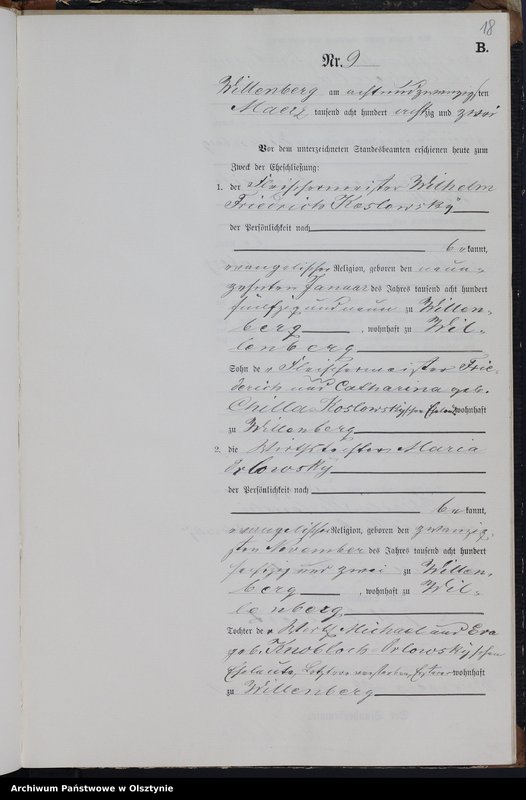 18
B.
Nr. 9
Willenberg am achtundzwanzigsten
Maerz tausend acht hundert achtzig und zwei
Vor dem unterzeichneten Standesbeamten erschienen heute zum
Zweck der Eheschließung:
1. der Fleischermeister Wilhelm
Friedrich Koslowsky
der Persönlichkeit nach
bekannt,
evangelischer Religion, geboren den neun-
zehnten Januar des Jahres tausend acht hundert
fünfzig und neun zu Willen-
berg, wohnhaft zu Wil-
lenberg
Sohn der Fleischermeister Frie-
derich und Catharina geb.
Chilla-Koslowskyschen Eheleute wohnhaft
zu Willenberg
2. die Wirthstochter Maria
Orlowsky
der Persönlichkeit nach
bekannt,
evangelischer Religion, geboren den zwanzig-
sten November des Jahres tausend acht hundert
sechszig und zwei zu Willen-
berg, wohnhaft zu Wil-
lenberg
Tochter der Wirth Michael und Eva
geb. Knobloch-Orlowsky'schen
Eheleute, Letztere verstorben, Ersterer wohnhaft
zu Willenberg
Archiwum Państwowe w Olsztynie